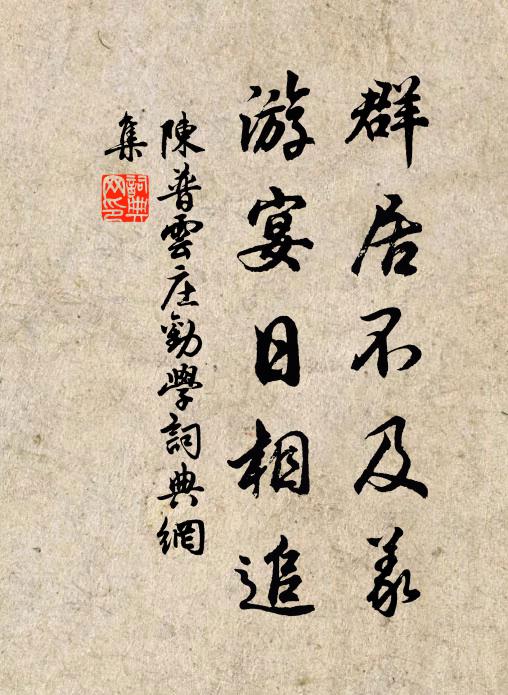 群居不及義
游宴日相追
陳普雲庄勸學詞典網
集
詞典网印